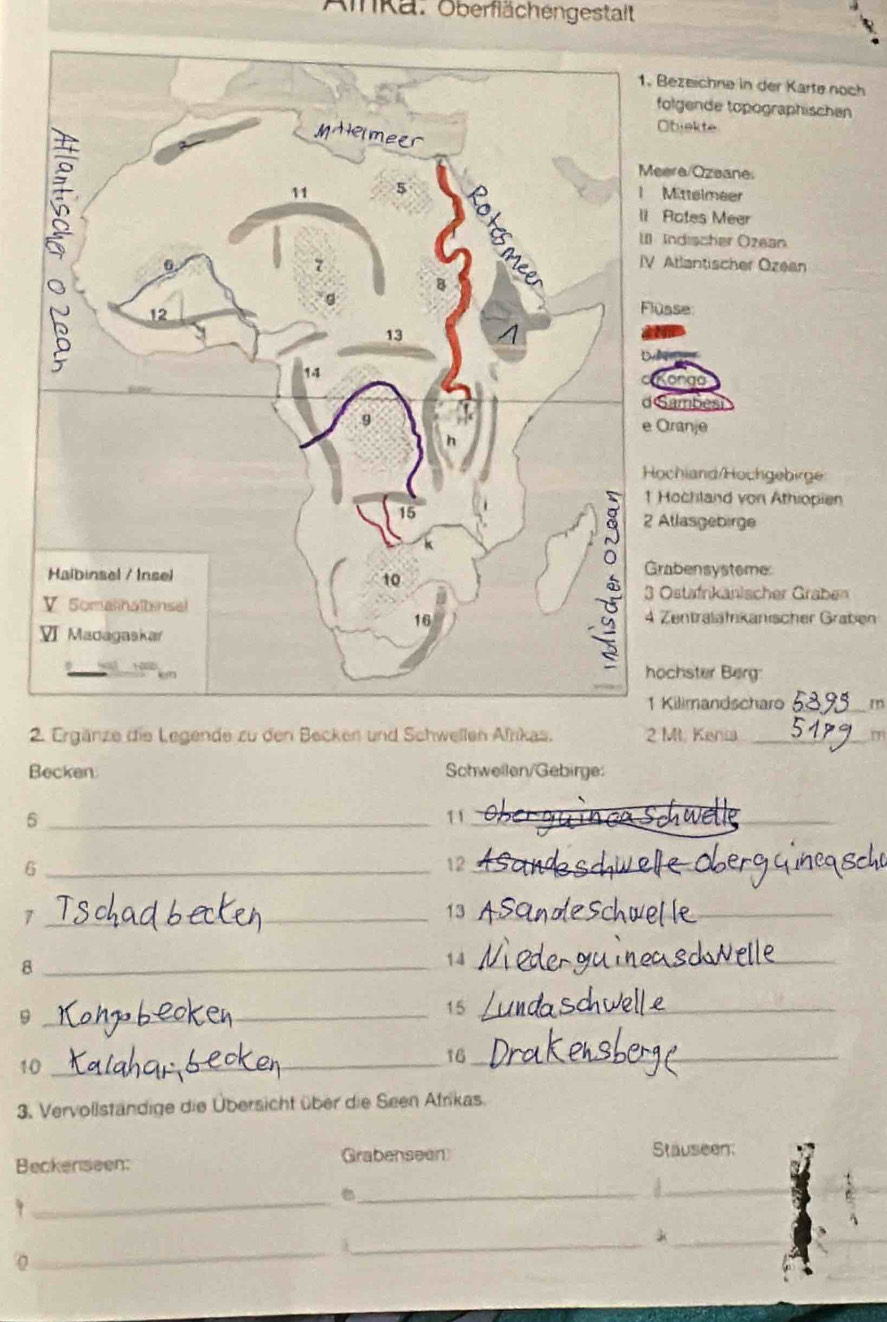 Afrika: Oberflächengestalt
1. Bezeichne in der Karte noch
folgende topographischen
Objekte
Meere/Ozeane:
I Mittelmeer
II Rotes Meer
III Indischer Ozean
IV Atlantischer Ozean
Flüsse:
a Nil
b
c Kongo
d Sambesi
e Oranje
Hochland/Hochgebirge:
1 Hochland von Äthiopien
2 Atlasgebirge
Grabensysteme:
3 Ostafrikanischer Graben
4 Zentralafrikanischer Graben
höchster Berg:
1 Kilimandscharo 5895 m
2 Mt. Kenia 5199 m
Atlantischer Ozean
Mittelmeer
Rotes meer
indischer Ozean
2
11
5
6
7
g
8
1
12
13
14
9
f
h
i
15
k
10
16
Halbinsel / Insel
V Somalihalbinsel
VI Madagaskar
0 500 1000 km
2. Ergänze die Legende zu den Becken und Schwellen Afrikas.
Becken: Schwellen/Gebirge:
5 11 Oberguineaschwelle
6 12 Asandeschwelle Oberguineaschw
7 Tschadbecken 13 Asandeschwelle
8 14 Niederguineaschwelle
9 Kongobecken 15 Lundaschwelle
10 Kalaharibecken 16 Drakensberge
3. Vervollständige die Übersicht über die Seen Afrikas.
Beckenseen: Grabenseen: Stauseen:
f h j
g i k